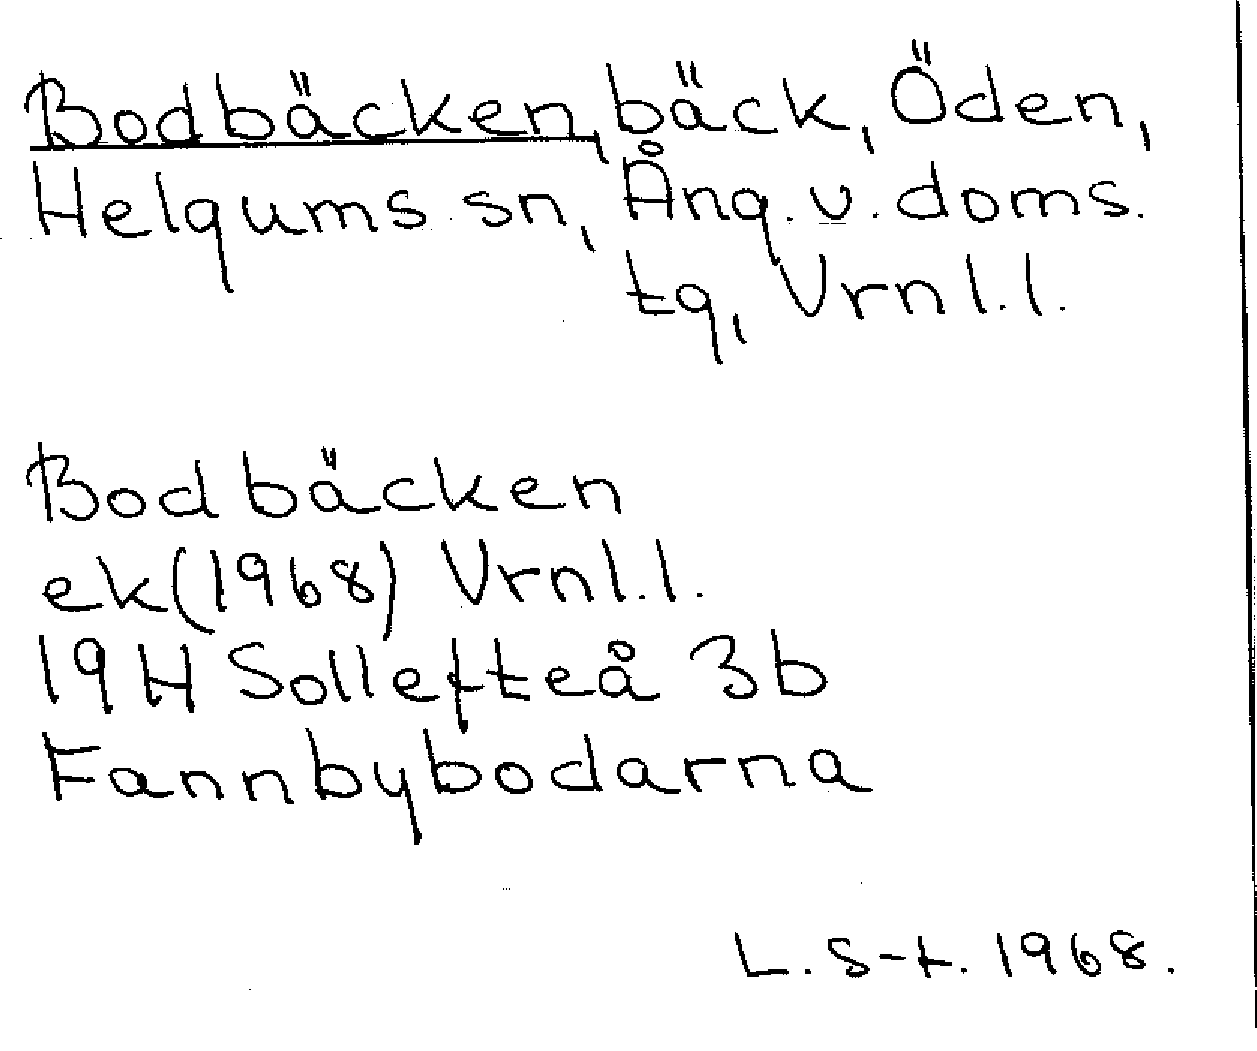 Bodbäcken, bäck, Öden,
Helgums sn, Ång. v. doms.
tg, Vrnl.l.
Bodbäcken
ek(1968) Vrnl.l.
19H Sollefteå 3b
Fannbybodarna
L. S-t. 1968.